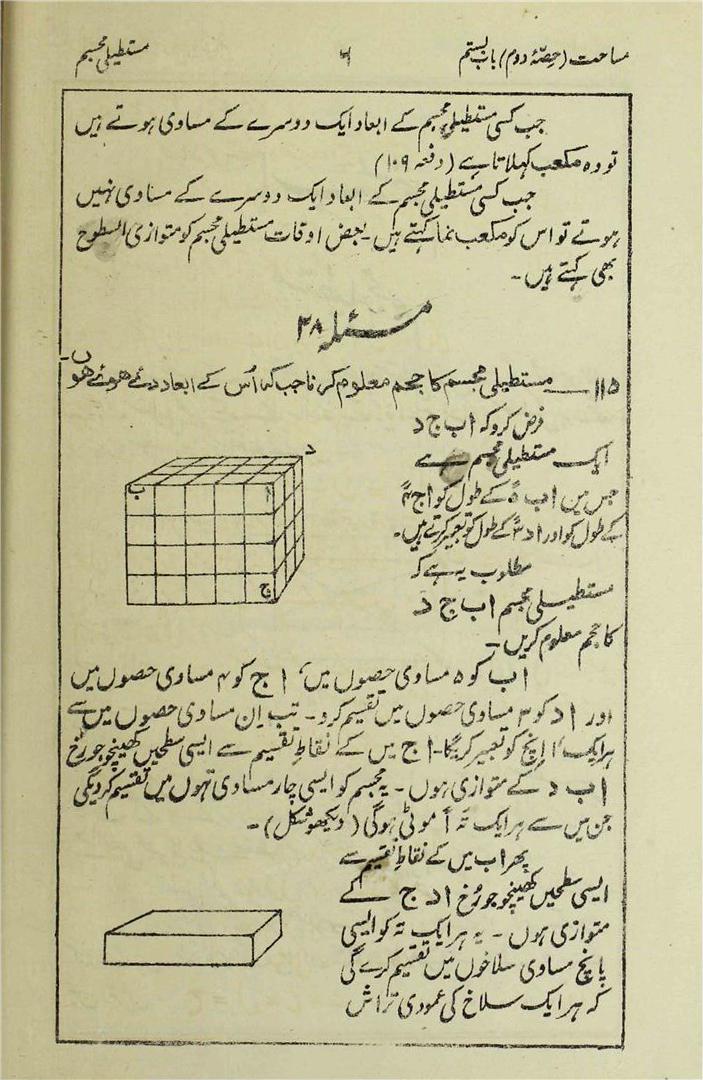 مساحت (حصّۂ دوم) باب بستم
۶
مستطیلی مجسم
جب کسی مستطیلی مجسم کے ابعاد ایک دوسرے کے مساوی ہوتے ہیں
تو وہ مکعب کہلاتا ہے (دفعہ ۱۰۹)
جب کسی مستطیلی مجسم کے ابعاد ایک دوسرے کے مساوی نہیں
ہوتے تو اس کو مکعب نما کہتے ہیں۔ بعض اوقات مستطیلی مجسم کو متوازی السطوح
بھی کہتے ہیں۔
مسئلہ ۲۸
۱۱۵ــــ مستطیلی مجسم کا حجم معلوم کرنا جب کہ اُس کے ابعاد دئے ہوئے ہوں۔
فرض کرو کہ ا ب ج د
ایک مستطیلی مجسم ہے
جس میں ا ب ۵ً کے طول کو ا ج ۴ً
کے طول کو اور ا د ۳ً کے طول کو تعبیر کرتے ہیں۔
مطلوب یہ ہے کہ
مستطیلی مجسم ا ب ج د
کا حجم معلوم کریں۔
د
ب
ا
ج
ا ب کو ۵ مساوی حصوں میں، ا ج کو ۴ مساوی حصوں میں
اور ا د کو ۳ مساوی حصوں میں تقسیم کرو۔ تب اِن مساوی حصوں میں سے
ہر ایک ۱ اِنچ کو تعبیر کریگا۔ ا ج میں کے نقاطِ تقسیم سے ایسی سطحیں کھینچو جو رُخ
ا ب د کے متوازی ہوں۔ یہ مجسم کو ایسی چار مساوی تہوں میں تقسیم کر دیگی
جن میں سے ہر ایک تہ ۱ً موٹی ہوگی (دیکھو شکل)۔
پھر ا ب میں کے نقاطِ تقسیم سے
ایسی سطحیں کھینچو جو رُخ ا د ج کے
متوازی ہوں۔ یہ ہر ایک تہ کو ایسی
پانچ مساوی سلاخوں میں تقسیم کرے گی
کہ ہر ایک سلاخ کی عمودی تراش